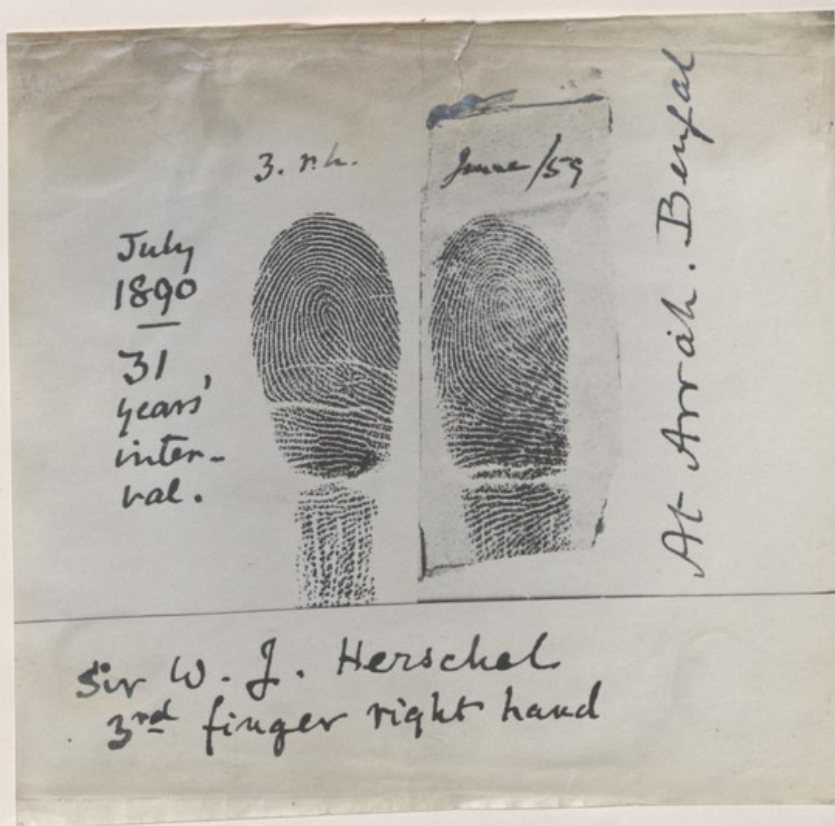 3. r.h.
June/59
July
1890
—
31
years'
inter-
val.
At Arrah. Bengal
Sir W. J. Herschel
3rd finger right hand